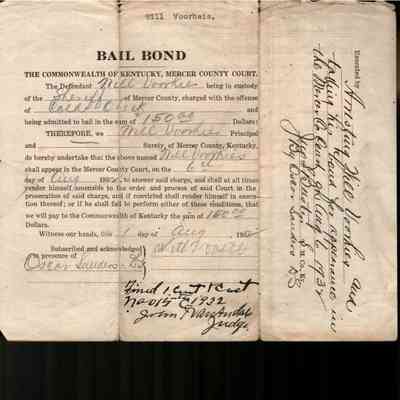 Will Voorheis.
BAIL BOND
THE COMMONWEALTH OF KENTUCKY, MERCER COUNTY COURT.
The Defendant Will Voorhies being in custody
of the Sheriff of Mercer County, charged with the offense
of Cold Check and
being admitted to bail in the sum of 150 00 Dollars:
THEREFORE, we Will Voorhies Principal
and Surety, of Mercer County, Kentucky,
do hereby undertake that the above named Will Voorhies
shall appear in the Mercer County Court, on the 6th
day of Aug 1932, to answer said charge, and shall at all times
render himself amenable to the order and process of said Court in the
prosecution of said charge, and if convicted shall render himself in execu-
tion thereof; or if he shall fail to perform either of these conditions, that
we will pay to the Commonwealth of Kentucky the sum of 150 00
Dollars.
Witness our hands, this 1 day of Aug 193
Subscribed and acknowledged
in presence of
Oscar Sanders D.S.
Fined 1 Cent & Cost
Nov 15 1932
John
Judge
Executed by
Arresting Will Voorhies and
taking his bond for appearance in
the Mercer Co Court Aug 6 1932
S. M. Co. Ky.
By Oscar Sanders D.S.